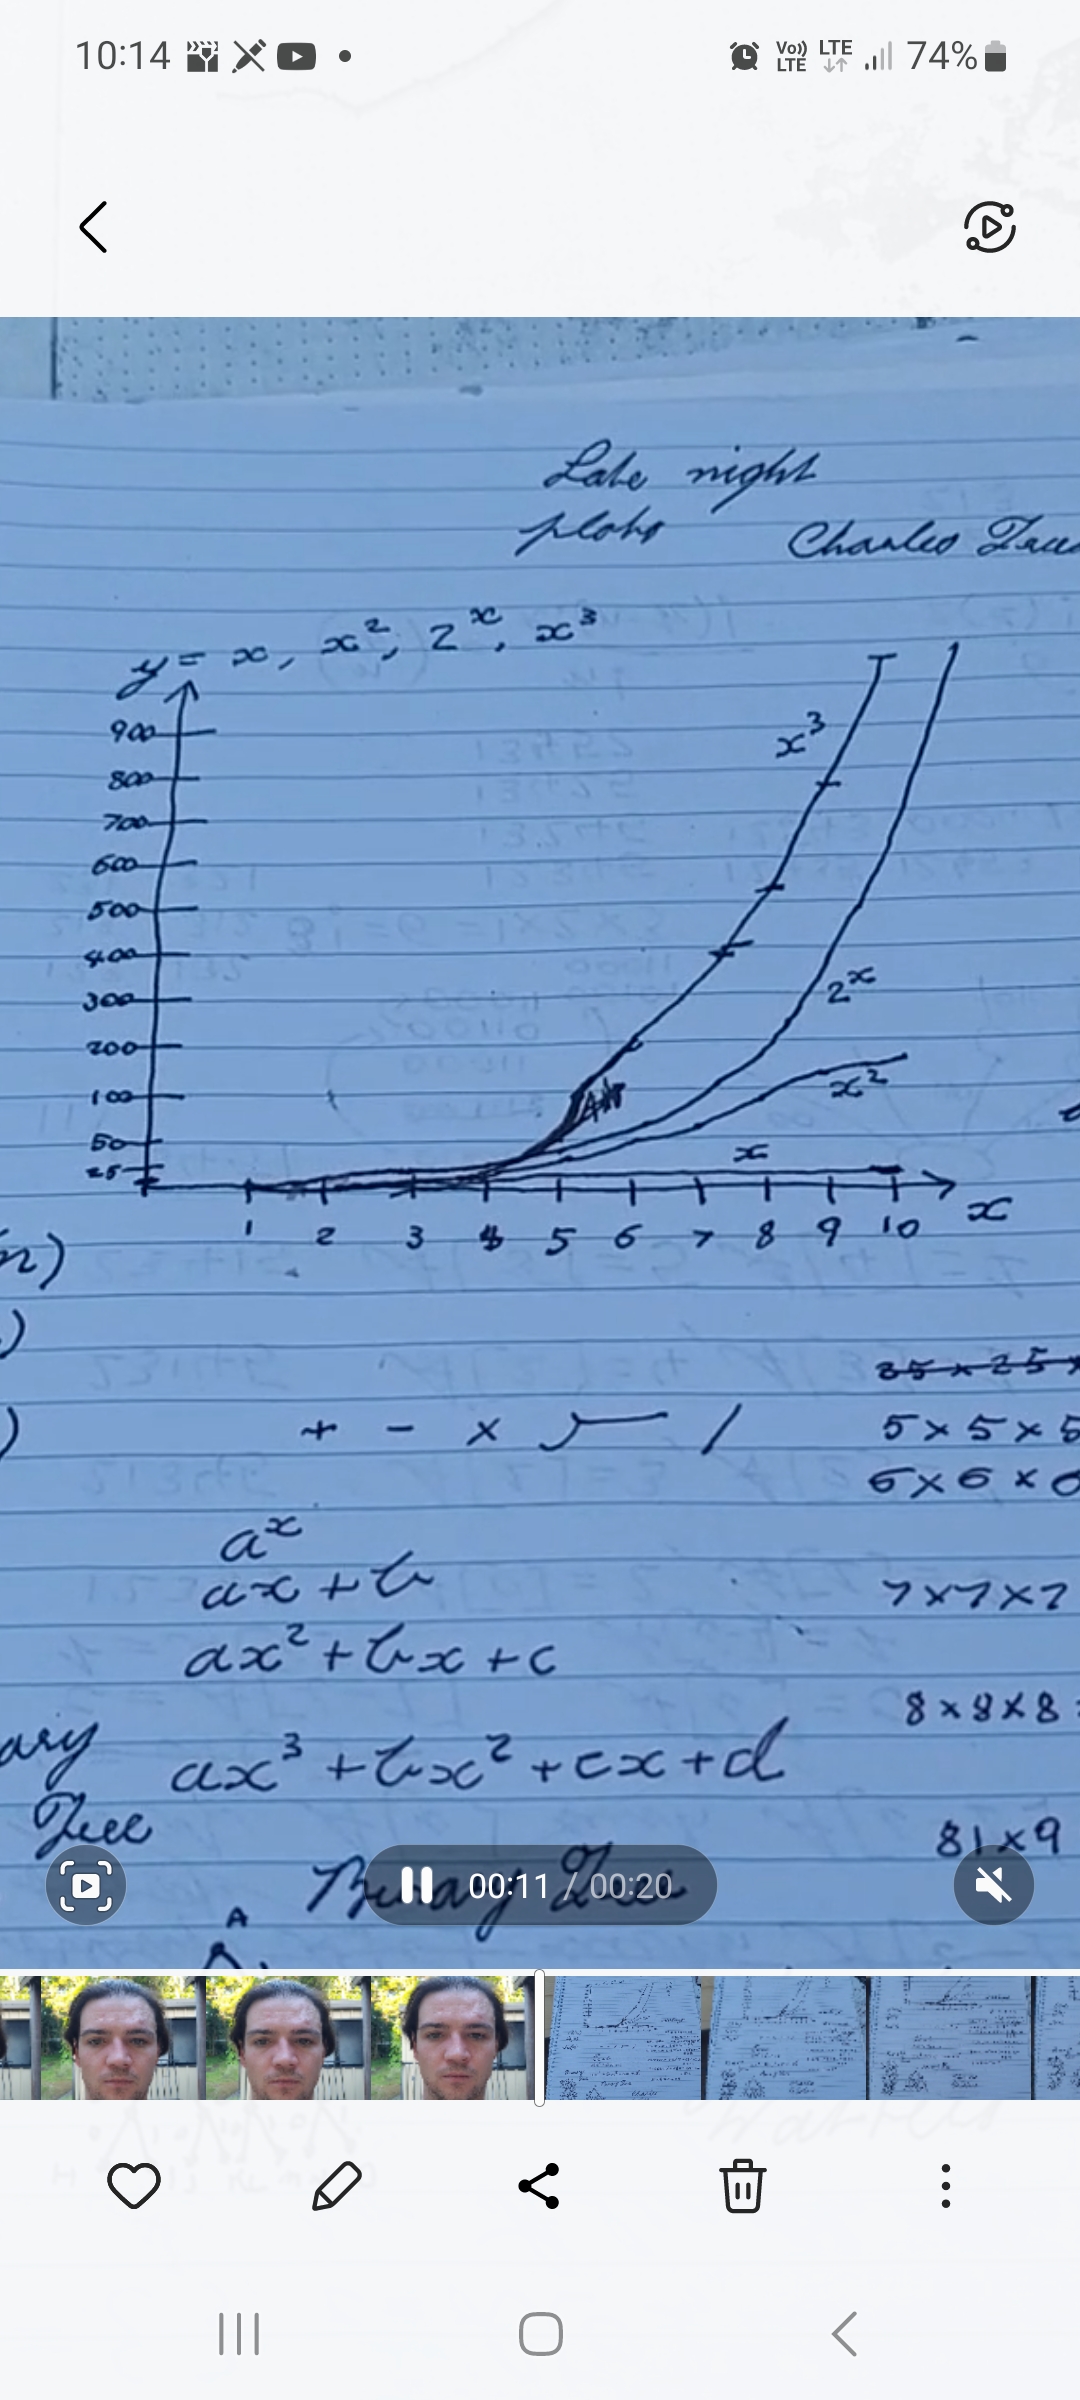 10:14
Vo)) LTE LTE 74%
Late night
plots
Charles
y = x, x², 2ˣ, x³
900
800
700
600
500
400
300
200
100
50
25
x³
2ˣ
x²
x
1 2 3 4 5 6 7 8 9 10 x
n)
)
)
25 × 25 ×
+ - × /
5 × 5 × 5
6 × 6 × 6
aˣ
ax + b
7 × 7 × 7
ax² + bx + c
8 × 8 × 8
ary
ax³ + bx² + cx + d
Tree
81 × 9
Binary Tree
00:11 / 00:20
A